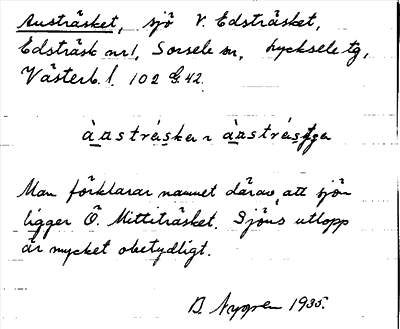 Austräsket, sjö V. Edsträsket,
Edsträsk nr 1, Sorsele sn, Lycksele tg,
Västerb. l. 102 G. 42.
Man förklarar namnet därav, att sjön
ligger Ö. Mittiträsket. Sjöns utlopp
är mycket obetydligt.
D. Nygren 1935.